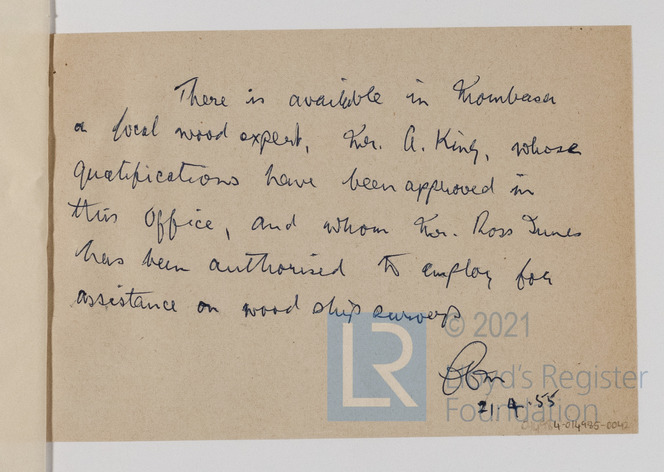 There is available in Mombasa
a local wood expert, Mr. A. King, whose
qualifications have been approved in
this Office, and whom Mr. Ross
has been authorised to employ for
assistance on wood ship surveys
LR
© 2021
Lloyd's Register
Foundation
21.4.55
4-014985-0042